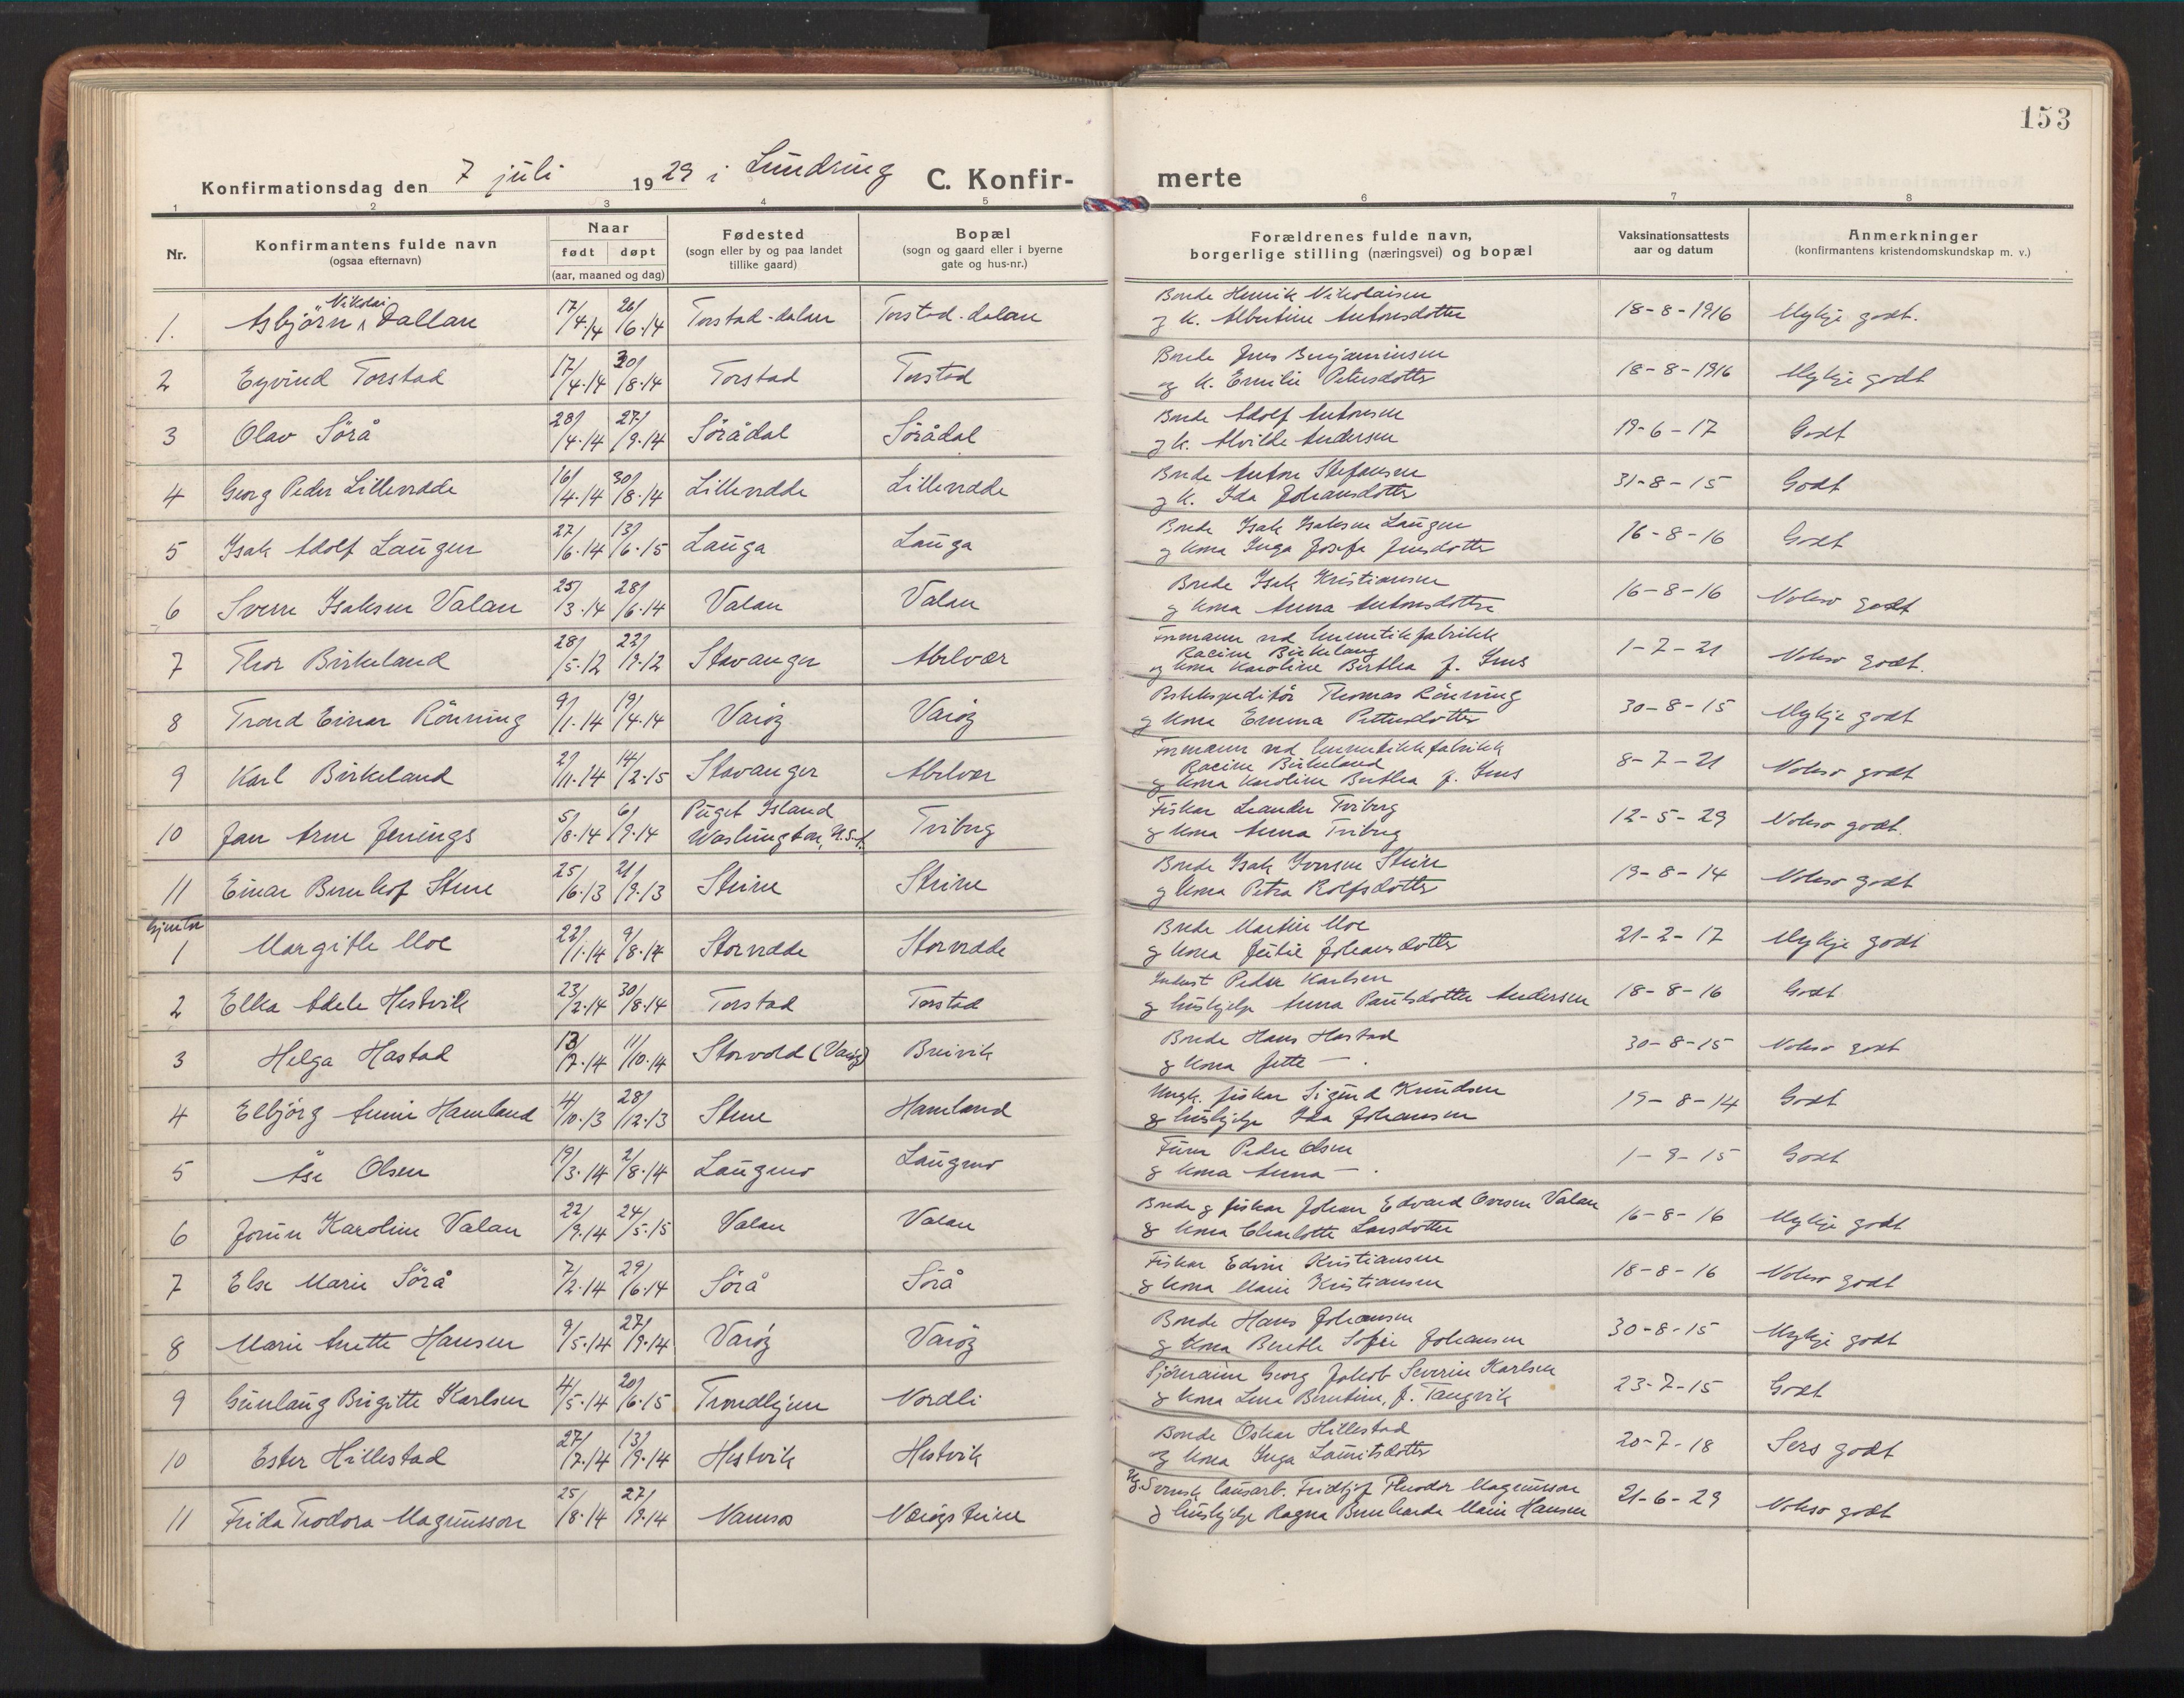 153
Konfirmationsdag den 7 juli 1929 i Lundring C. Konfir- merte
1 2 3 4 5 6 7 8
Nr. Konfirmantens fulde navn (ogsaa efternavn) Naar født døpt (aar, maaned og dag) Fødested (sogn eller by og paa landet tillike gaard) Bopæl (sogn og gaard eller i byerne gate og hus-nr.) Forældrenes fulde navn, borgerlige stilling (næringsvei) og bopæl Vaksinationsattests aar og datum Anmerkninger (konfirmantens kristendomskundskap m. v.)
1. Asbjörn Nikolai Dallan 17/4.14 26/6.14 Torstad-dalan Torstad-dalan Bonde Henrik Nikolaisen
og k. Albertine Antonsdotter 18-8-1916 Mykje godt.
2 Eyvind Torstad 17/4.14 30/8.14 Torstad Torstad Bonde Jens Benjaminsen
og k. Emilie Petersdotter 18-8-1916 Mykje godt
3 Olav Sörå 28/4.14 27/9.14 Sörådal Sörådal Bonde Adolf Antonsen
og k. Alvilde Andersen 19-6-17 Godt
4 Georg Peder Lillevadde 16/4.14 30/8.14 Lillevadde Lillevadde Bonde Anton Stefansen
og k. Ida Johansdotter 31-8-15 Godt
5 Isak Adolf Laugen 27/6.14 13/6.15 Lauga Lauga Bonde Isak Isaksen Laugen
og kona Inga Josefa Jensdotter 16-8-16 Godt
6 Sverre Isaksen Valan 25/3.14 28/6.14 Valan Valan Bonde Isak Kristiansen
og kona Anna Antonsdotter 16-8-16 Nokso godt
7 Thor Birkeland 28/5.12 22/9.12 Stavanger Abelvær Formann ved hermetikfabrikk
Racine Birkeland
og kona Karoline Berthea f. Jens 1-7-21 Nokso godt.
8 Trond Einar Rönning 9/1.14 19/4.14 Varöy Varöy Postekspeditör Thomas Rönning
og kona Emma Pettersdotter 30-8-15 Mykje godt
9 Karl Birkeland 2/11.14 14/2.15 Stavanger Abelvær Formann ved hermetikkfabrikk
Racine Birkeland
og kona Karoline Berthea f. Jens 8-7-21 Nokso godt
10 Jan Arne Jenings 5/8.14 6/9.14 Puget Island
Washington, U.S.A. Tviberg Fiskar Leander Tviberg
og kona Anna Tviberg 12-5-29 Nokso godt.
11 Einar Bernhof Stene 25/6.13 21/9.13 Steine Steine Bonde Isak Iversen Steine
og kona Petra Rolfsdotter 19-8-14 Nokso godt
Gjentor
1 Margithe Moe 22/1.14 9/8.14 Storvadde Storvadde Bonde Martin Moe
og kona Julie Johansdotter 21-2-17 Mykje godt
2 Ellea Adele Hestvik 23/2.14 30/8.14 Torstad Torstad Peder Karlsen
og hushjelp Anna Paulsdotter Andersen 18-8-16 Godt
3 Helga Hastad 13/7.14 11/10.14 Storvold (Varöy) Breivik Bonde Hans Hastad
og kona Jette — . 30-8-15 Nokso godt
4 Elbjörg Annie Hamland 4/10.13 28/12.13 Stene Hamland Ungk. fiskar Sigurd Knudsen
og hushjelp Ida Johansen 19-8-14 Godt
5 Åse Olsen 19/3.14 2/8.14 Laugmo Laugmo Peder Olsen
og kona Anna — . 1-9-15 Godt
6 Jorun Karoline Valan 22/9.14 24/5.15 Valan Valan Bonde og fiskar Johan Edvard Ovesen Valan
og kona Charlotte Larsdotter 16-8-16 Mykje godt
7 Else Marie Sörå 7/2.14 29/6.14 Sörå Sörå Fiskar Edvin Kristiansen
og kona Marie Kristiansen 18-8-16 Nokso godt
8 Marie Anette Hansen 9/5.14 27/9.14 Varöy Varöy Bonde Hans Johansen
og kona Berethe Sofie Johansen 30-8-15 Mykje godt
9 Gunlaug Birgitte Karlsen 4/5.14 20/6.15 Trondhjem Nordli Sjömann Georg Jakob Severin Karlsen
og kona Lina Berntine, f. Tangvik 23-7-15 Godt
10 Ester Hillestad 27/7.14 13/9.14 Hestvik Hestvik Bonde Oskar Hillestad
og kona Inga Lauritsdotter 20-7-18 Sers godt
11 Frida Teodora Magnusson 25/8.14 27/9.14 Namsos Næröysteine Ug. Svensk lausarb. Fridtjof Theodor Magnusson
og hushjelp Ragna Bernharda Marie Hansen 21-6-29 Nokso godt